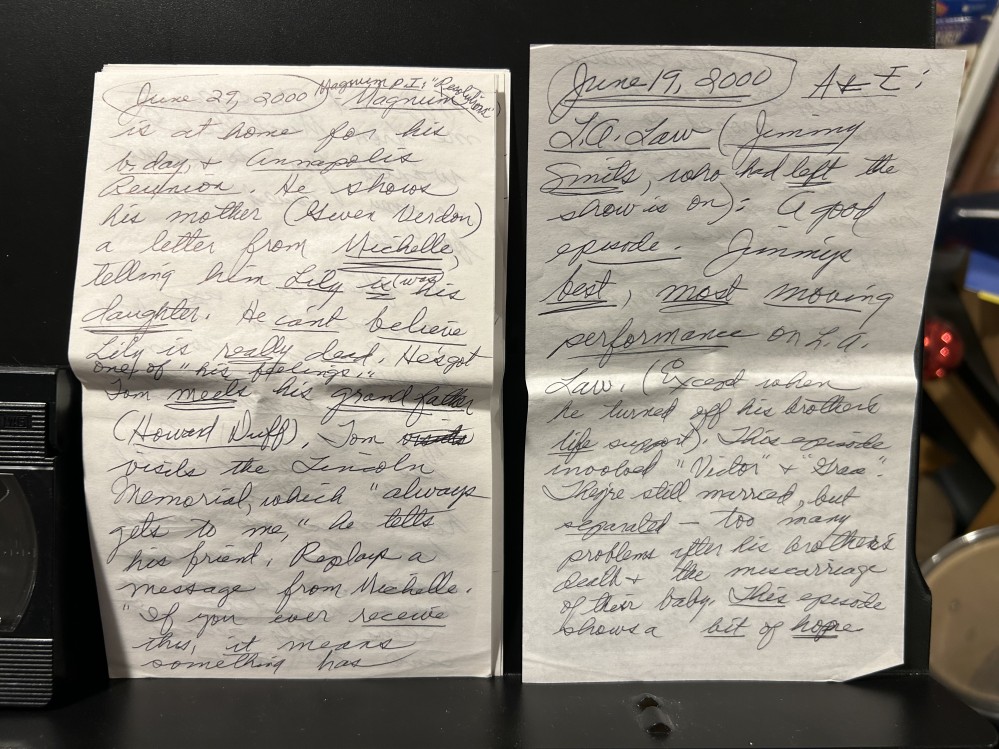 June 29, 2000 Magnum P.I: "Resolutions"
- Magnum
is at home for his
b.day, & Annapolis
Reunion. He shows
his mother (Gwen Verdon)
a letter from Michelle,
telling him Lily is (was) his
daughter. He can't believe
Lily is really dead. He's got
one of "his feelings."
Tom meets his grandfather
(Howard Duff). Tom visits
visits the Lincoln
Memorial, which "always
gets to me," he tells
his friend. Replays a
message from Michelle.
"If you ever receive
this, it means
something has
June 19, 2000 A & E:
L.A. Law (Jimmy
Smits, who had left the
show is on): A good
episode. Jimmys
best, most moving
performance on L.A.
Law. (Except when
he turned off his brother's
life support). This episode
involved "Victor" & "Grace".
They're still married, but
separated - too many
problems after his brother's
death & the miscarriage
of their baby. This episode
shows a bit of hope